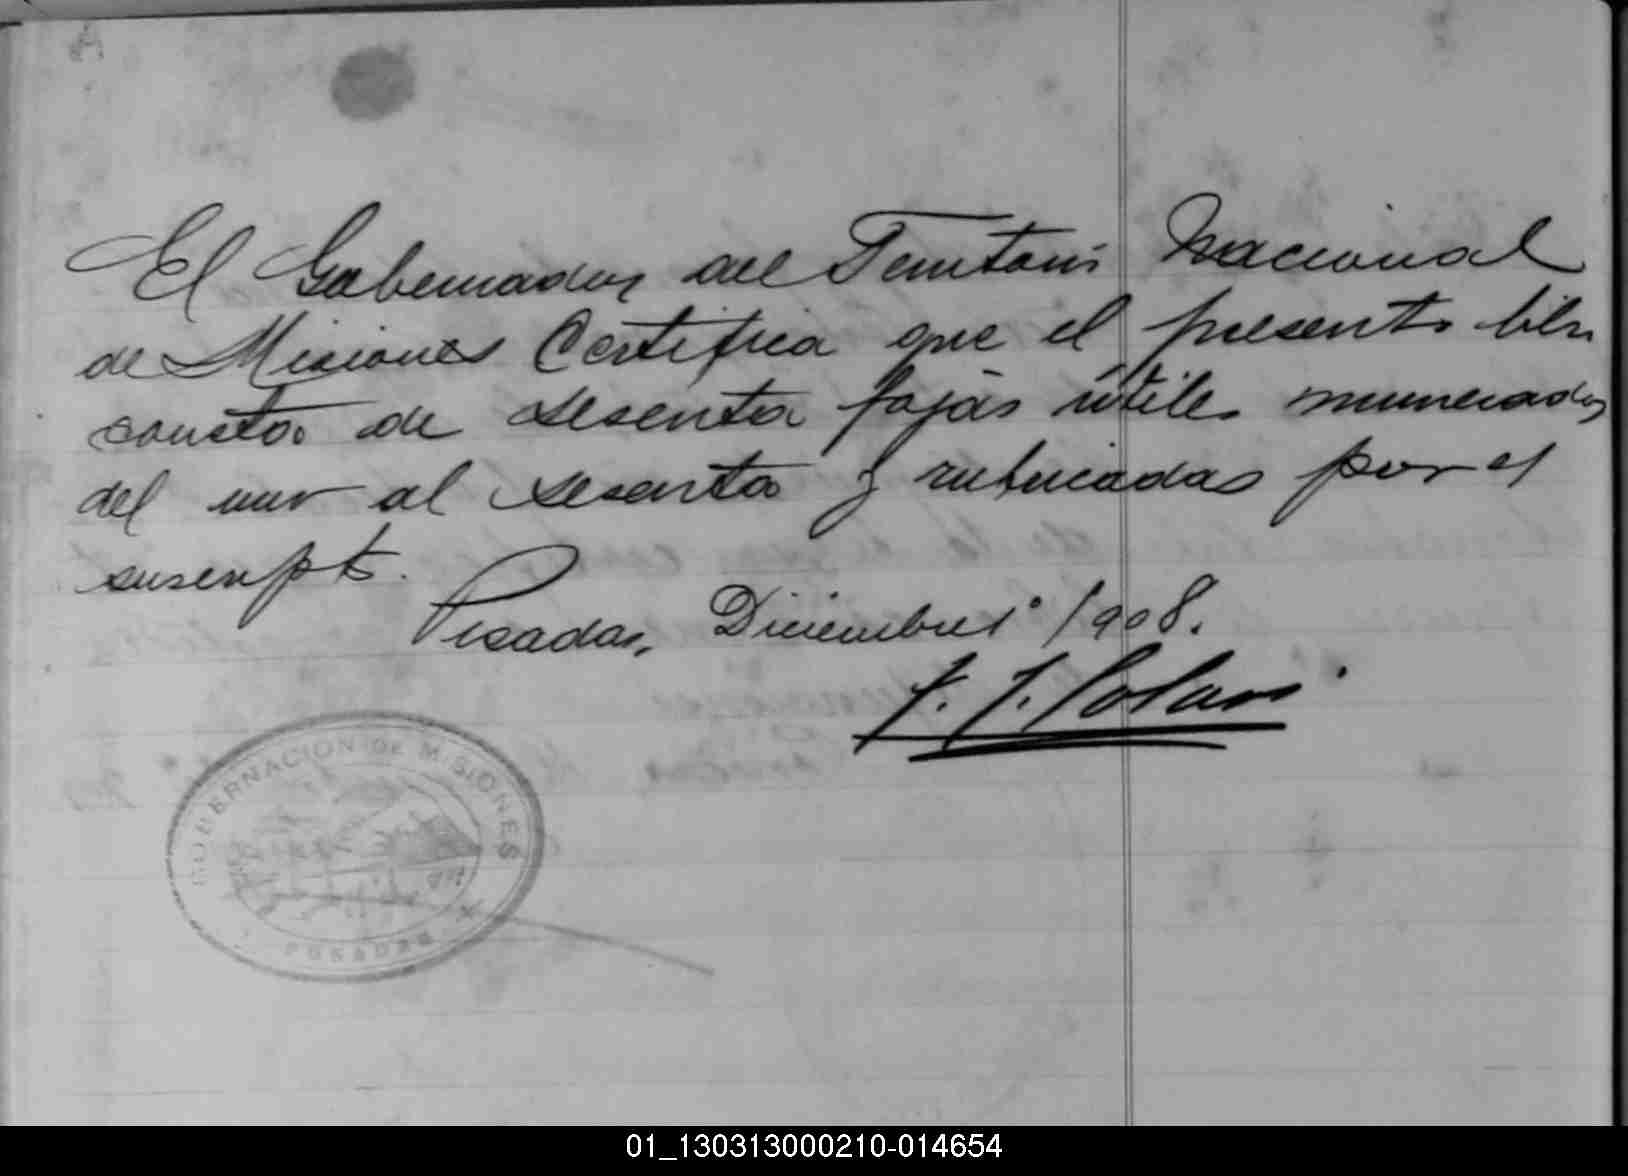 El Gobernador del Territorio Nacional
de Misiones Certifica que el presente libro
consta de sesenta fojas útiles numeradas
del uno al sesenta y rubricadas por el
suscripto.
Posadas, Diciembre 1º 1908.
J. J. Lolavi
GOBERNACION DE MISIONES
POSADAS
01_130313000210-014654